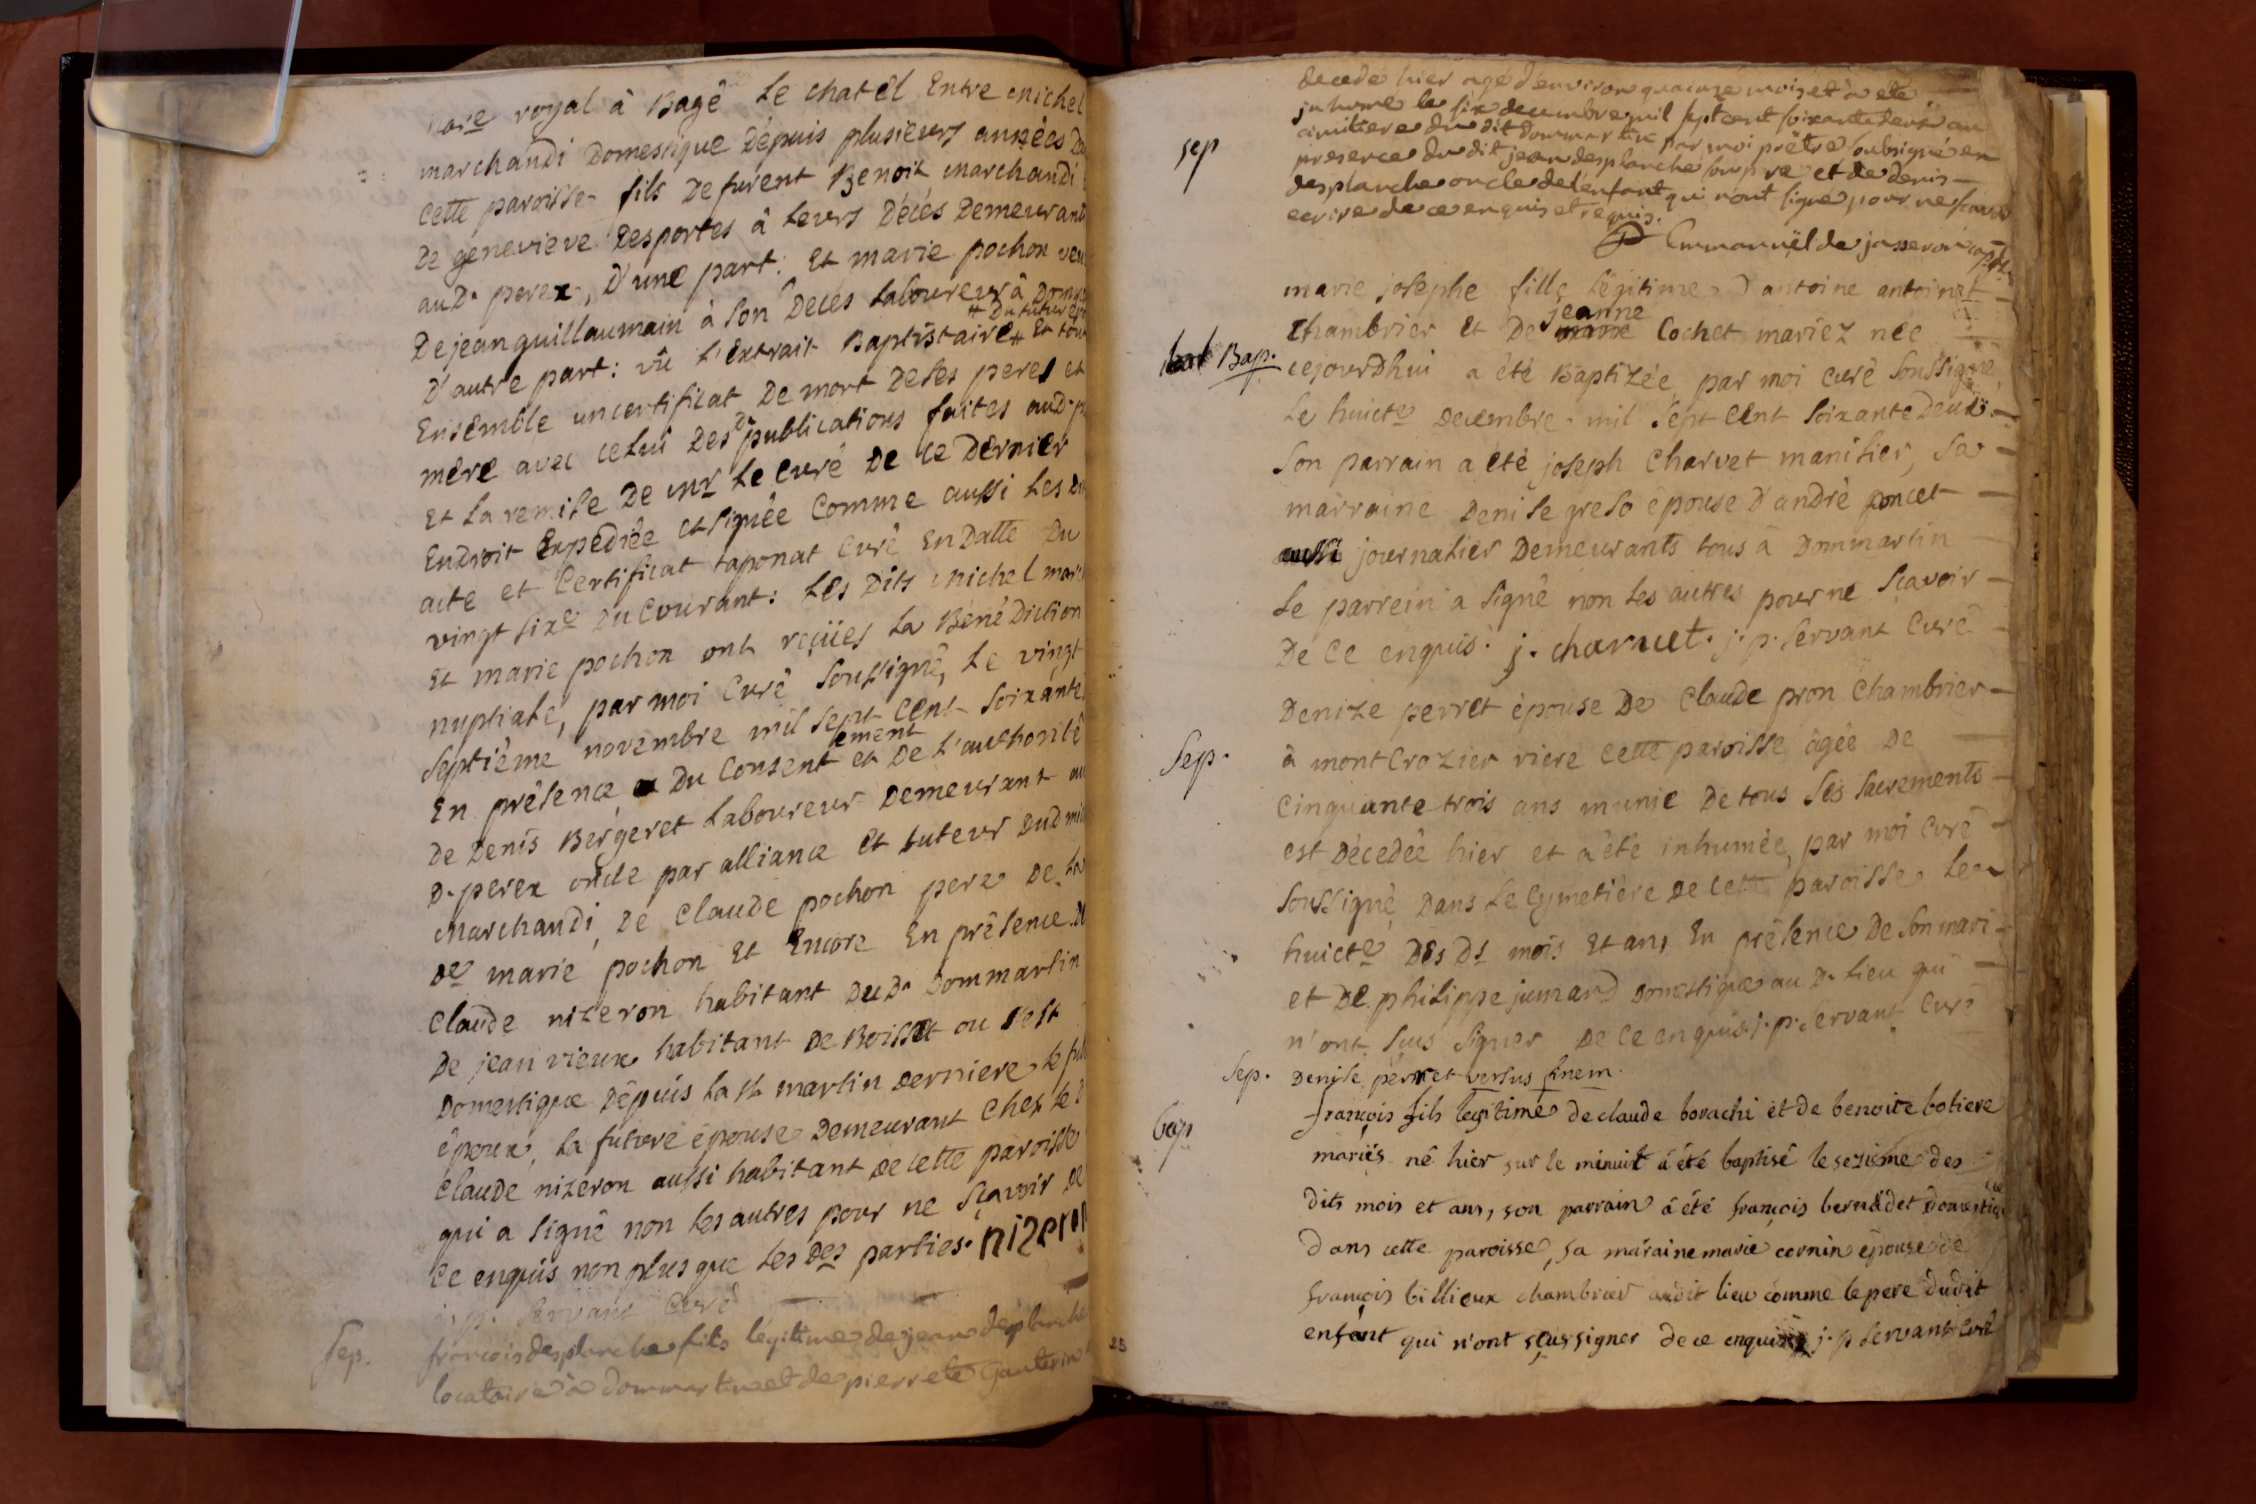 royal â Bagé Le chatêl Entre michel
marchandi Domestique Dépuis plusieurs années
cette paroisse fils De furent Benoit marchandi
De genevieve Desportes â Leurs Décés Demeurants
auD. perex, D'une part: Et marie pochon
De jean guillaumain à son Decés Laboureur â
# Du futur
D'autre part: vû L'Extrait Baptistaire # Et tout
Ensemble un certificat De mort De ses peres et
mère avec celui Des publications faites aud.
Et La remise De mr Le curé De ce Dernier
Endroit Expediée et signée comme aussi Les
acte et Certificat taponat curé En Datte Du
vingt sixe Du courant: Les Dits michel
Et marie pochon ont reçües La Bénédiction
nuptiale, par moi Curé Soussigné, Le vingt
septième novembre mil sept cent soixante
ement
En présence Du Consent et De L'authorité
De Denis Bergeret Laboureur Demeurant
D. perex oncle par alliance Et tuteur Dud
marchandi, De Claude pochon pere De La
De marie pochon Et Encore En présence
Claude nizeron habitant Du D. Dommartin
De jean vieux habitant De Boisset ou s'est
Domestique Dépuis La St martin derniere Le
époux, La future épouse Demeurant Chez le
Claude nizeron aussi habitant De cette paroisse
qui a signé non Les autres pour ne sçavoir De
ce enquis non plus que Les Des parties. nizeron
j. p. Servant Curé
Sep.
francois desplanche fils legitime de jean desplanche
locataire a dommartin et de pierrete
decede hier agé d'environ quatorze mois et a eté
sep
inhumé le six decembre mil sept cent soixante deux au
cimitiere du dit dommartin par moi prêtre soubsigné en
presence du dit jean desplanche son pere et de denis
desplanche oncle de l'enfant qui n'ont signé pour ne scavoir
ecrire de ce enquis et requis.
Emmanuël de jasseron
marie josephe fille Légitime D'antoine antoinet
jeanne
Chambrier Et De Cochet mariez née
Bap.
cejourDhui a été Baptizée par moi curé Soussigné
Le huicte Decembre mil sept cent soixante Deux
Son parrain a été joseph Charvet manilier, sa
marraine Denise greso épouse D'andré poncet
aussi journalier Demeurants tous â Dommartin
Le parrein a signé non Les autres pour ne sçavoir
De ce enquis. j. charuet. j. p. Servant Curé
Denize perret épouse De Claude pron Chambrier
Sep.
â montCrozier riere cette paroisse âgée De
Cinquante trois ans munie De tous Ses Sacrements
est Décedée hier et a été inhumée, par moi Curé
Soussigné, Dans Le Cymetière De cette paroisse Le
huicte Des Ds mois Et an, En présence De son mari
et De philippe jumard Domestique au D. Lieu qui
n'ont sçus signer De ce enquis. j. p. Servant Curé
Sep.
Denise perret versus finem.
bap
françois fils legitime de claude borachi et de benoite botiere
mariés né hier sur le minuit a été baptisé le sezieme des
dits mois et ans, son parrain a été françois bernädet Domestique
Dans cette paroisse, sa maraine marie cornin épouse de
françois billieux chambrier audit lieu comme le pere dudit
enfant qui n'ont sçus signer de ce enquis j. p Servant Curé
23